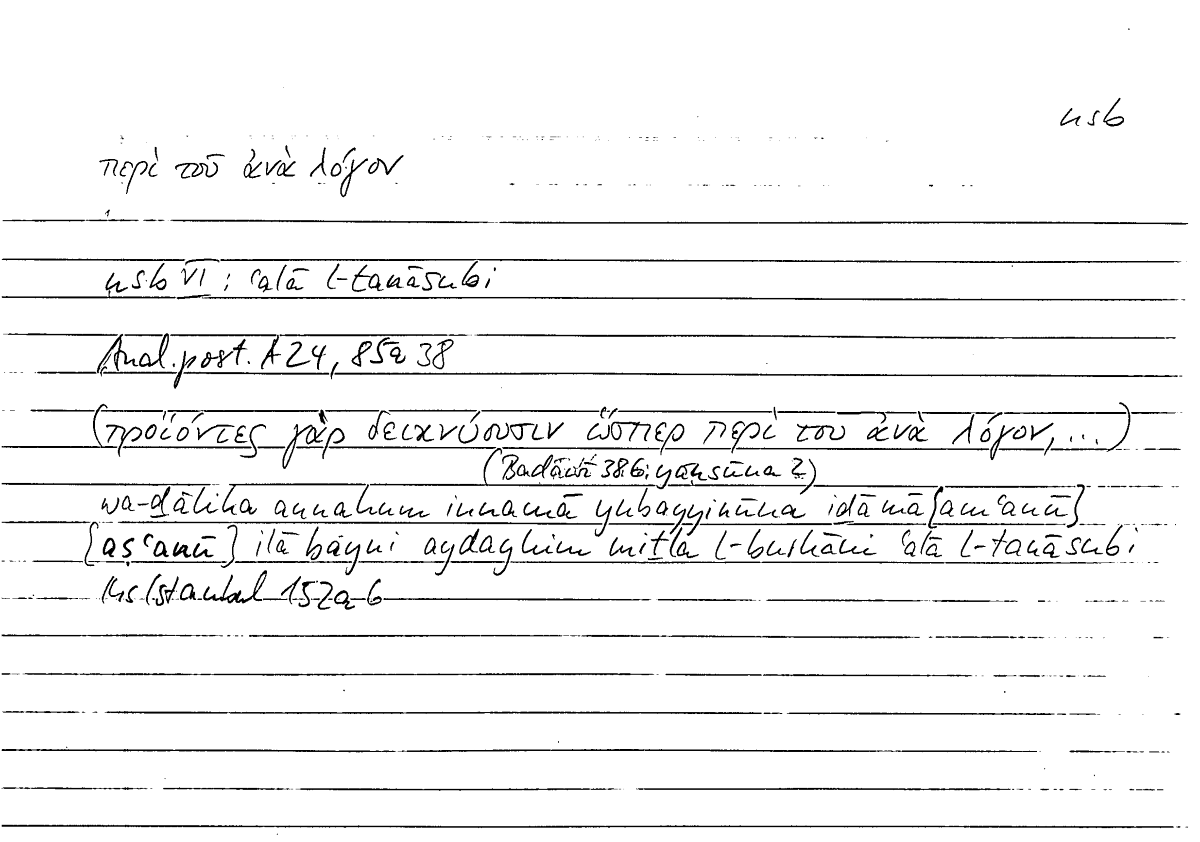 nsb
περὶ τοῦ ἀνὰ λόγον
nsb VI : ʿalā l-tanāsubi
Anal. post. A 24, 85a 38
(προϊόντες γὰρ δεικνύουσιν ὥσπερ περὶ του ἀνὰ λόγον, ...)
(Badāwī 386: yaḥsūna ?)
wa-ḏālika annahum innamā yubayyinūna iḏā mā [amʿanū]
[aṣʿanū] ilā bayni aydayhim miṯla l-burhāni ʿalā l-tanāsubi
Hs Istanbul 152a 6